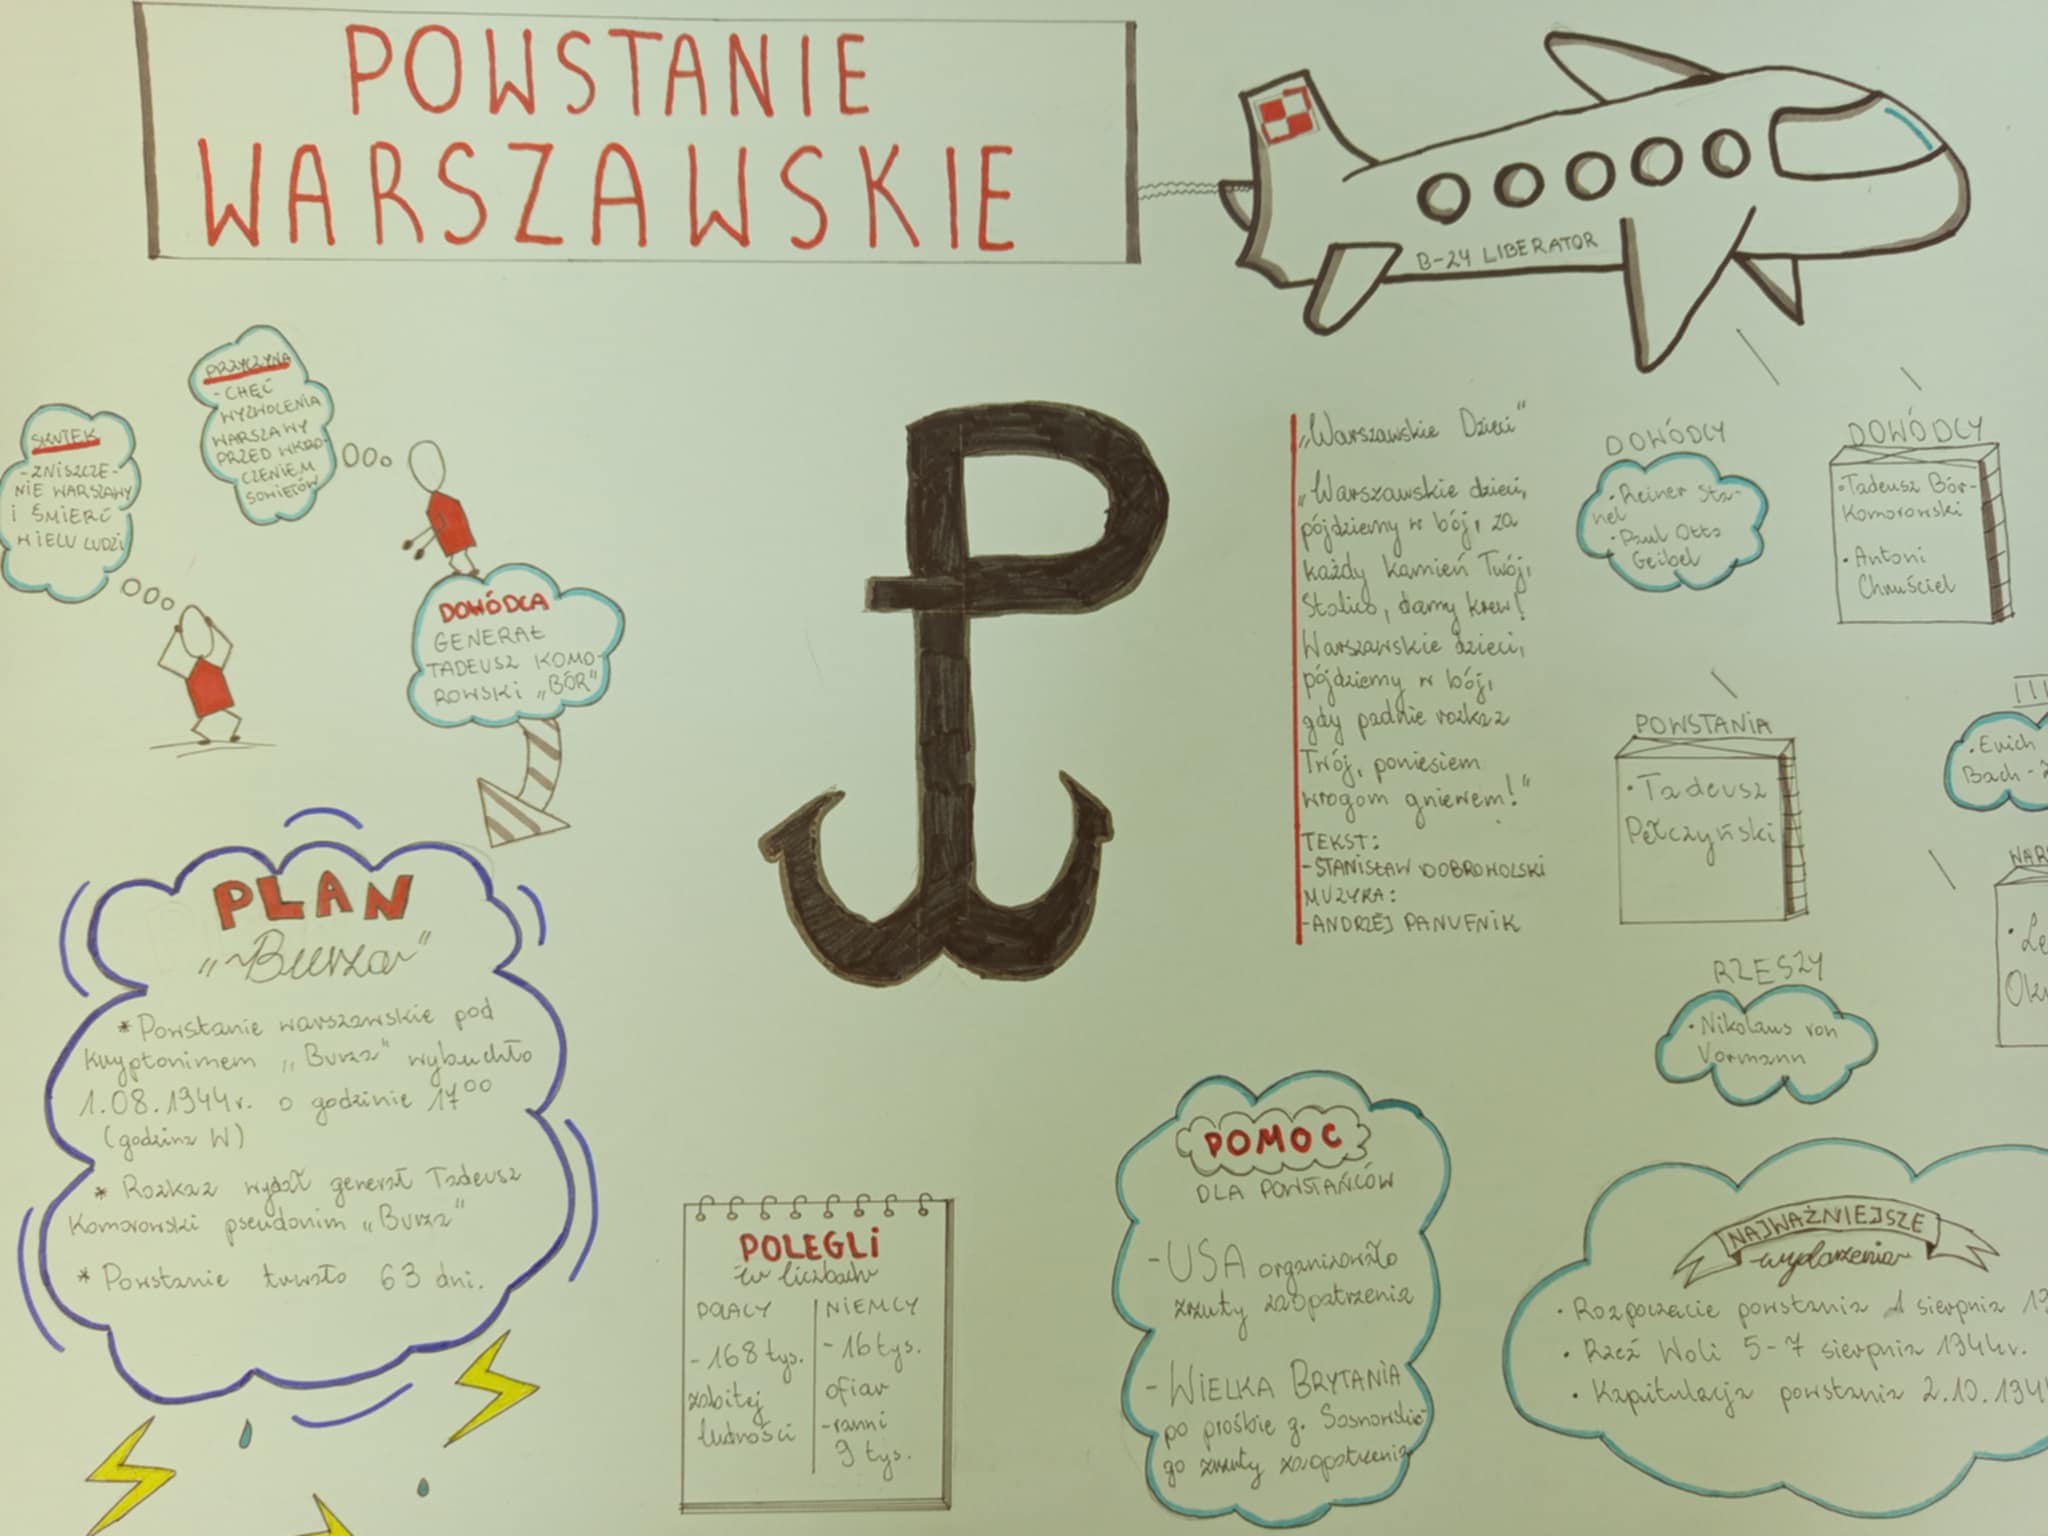 POWSTANIE
WARSZAWSKIE
B-24 LIBERATOR
PRZYCZYNA
- CHĘĆ
WYZWOLENIA
WARSZAWY
PRZED WKRO-
CZENIEM
SOWIETÓW
SKUTEK
- ZNISZCZE-
NIE WARSZAWY
I ŚMIERĆ
WIELU LUDZI
DOWÓDCA
GENERAŁ
TADEUSZ KOMO-
ROWSKI „BÓR"
PLAN
„Burza"
* Powstanie warszawskie pod
kryptonimem „Burza" wybuchło
1.08.1944r. o godzinie 17⁰⁰
(godzina W)
* Rozkaz wydał generał Tadeusz
Komorowski pseudonim „Burza"
* Powstanie trwało 63 dni.
POLEGLI
w liczbach
POLACY
- 168 tys.
zabitej
ludności
NIEMCY
- 16 tys.
ofiar
- ranni
9 tys.
„Warszawskie Dzieci"
„Warszawskie dzieci,
pójdziemy w bój, za
każdy kamień Twój,
Stolico, damy krew!
Warszawskie dzieci,
pójdziemy w bój,
gdy padnie rozkaz
Trój, poniesiem
wrogom gniewem!"
TEKST:
- STANISŁAW DOBROWOLSKI
MUZYKA:
- ANDRZEJ PANUFNIK
DOWÓDCY
• Reiner Sta-
hel
• Paul Otto
Geibel
DOWÓDCY
• Tadeusz Bór-
Komorowski
• Antoni
Chruściel
POWSTANIA
• Tadeusz
Pełczyński
III
• Erich
Bach - Z
WAR
• Le
Oku
RZESZY
• Nikolaus von
Vormann
POMOC
DLA POWSTAŃCÓW
- USA organizowało
zrzuty zaopatrzenia
- WIELKA BRYTANIA
po prośbie g. Sosnowskie-
go zrzuty zaopatrzenia
NAJWAŻNIEJSZE
wydarzenia
• Rozpoczęcie powstania 1 sierpnia 19
• Rzeź Woli 5-7 sierpnia 1944r.
• Kapitulacja powstania 2.10.1944